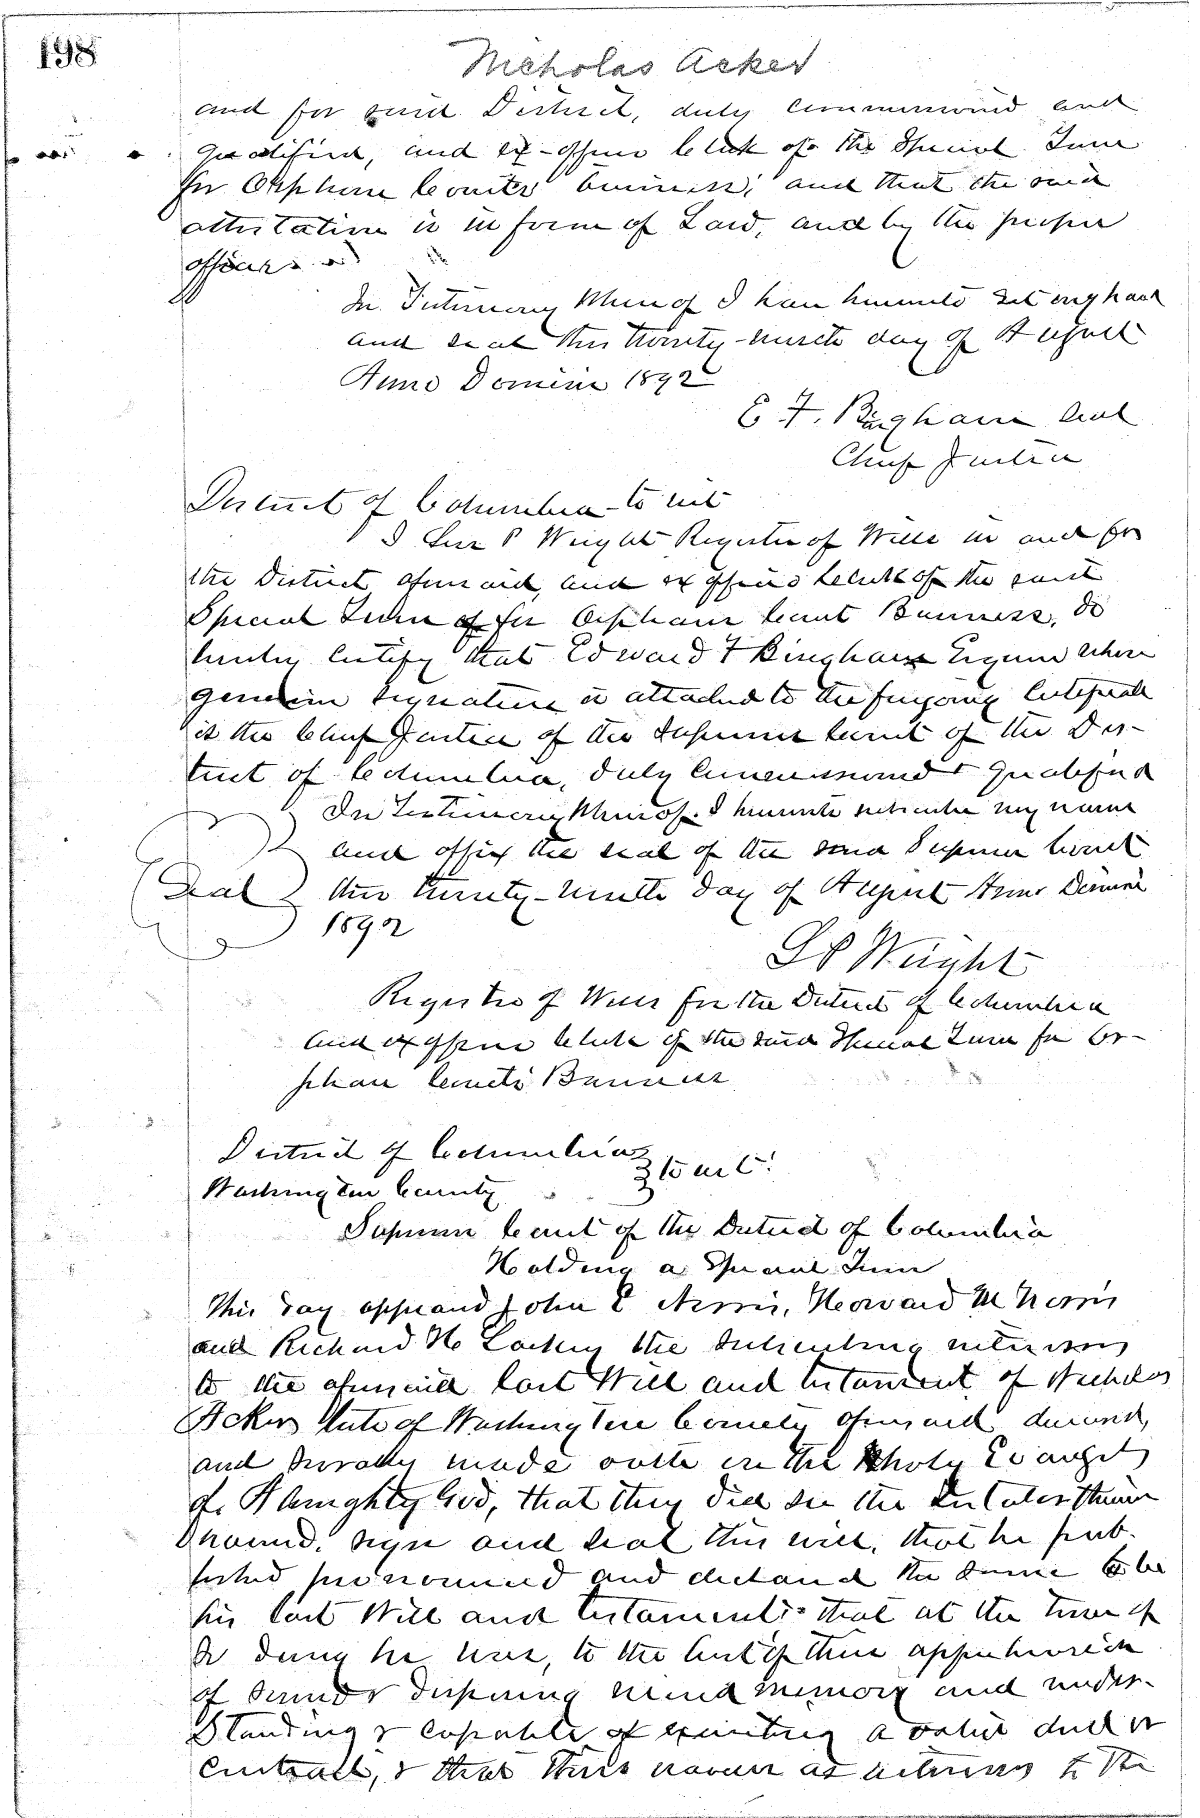 198
Nicholas Acker
and for said District, duly commissioned and
qualified, and ex-officio Clerk of the Special Term
for Orphans Courts business; and that the said
attestation is in form of Law, and by the proper
officers
In Testimony Whereof I have hereunto set my hand
and seal this twenty-ninth day of August
Anno Domini 1892
E. F. Bingham Seal
Chief Justice
District of Columbia to wit
I P Wright Register of Wills in and for
the District aforesaid, and ex officio Clerk of the said
Special Term of for Orphans Court Business, do
hereby Certify that Edward F Bingham Esquire whose
genuine signature is attached to the foregoing Certificate
is the Chief Justice of the Supreme Court of the Dis-
trict of Columbia, duly Commissioned & qualified
In Testimony Whereof I hereunto subscribe my name
and affix the seal of the said Supreme Court
Seal this twenty-ninth day of August Anno Domini
1892
L P Wright
Register of Wills for the District of Columbia
and ex officio Clerk of the said Special Term for Or-
phans Courts Business
District of Columbia
Washington County } to wit:
Supreme Court of the District of Columbia
Holding a Special Term
This day appeared John E Norris, Howard M Norris
and Richard H Lackey the subscribing witnesses
to the aforesaid last Will and testament of Nicholas
Acker late of Washington County aforesaid deceased,
and severally made oath on the holy Evangels
of Almighty God, that they did see the testator therein
named, sign and seal this will, that he pub-
lished pronounced and declared the same to be
his last Will and testament; that at the time of
so doing he was, to the best of their apprehension
of sound & disposing mind memory and under-
standing & capable of executing a valid deed or
Contract, & that their names as witnesses to the